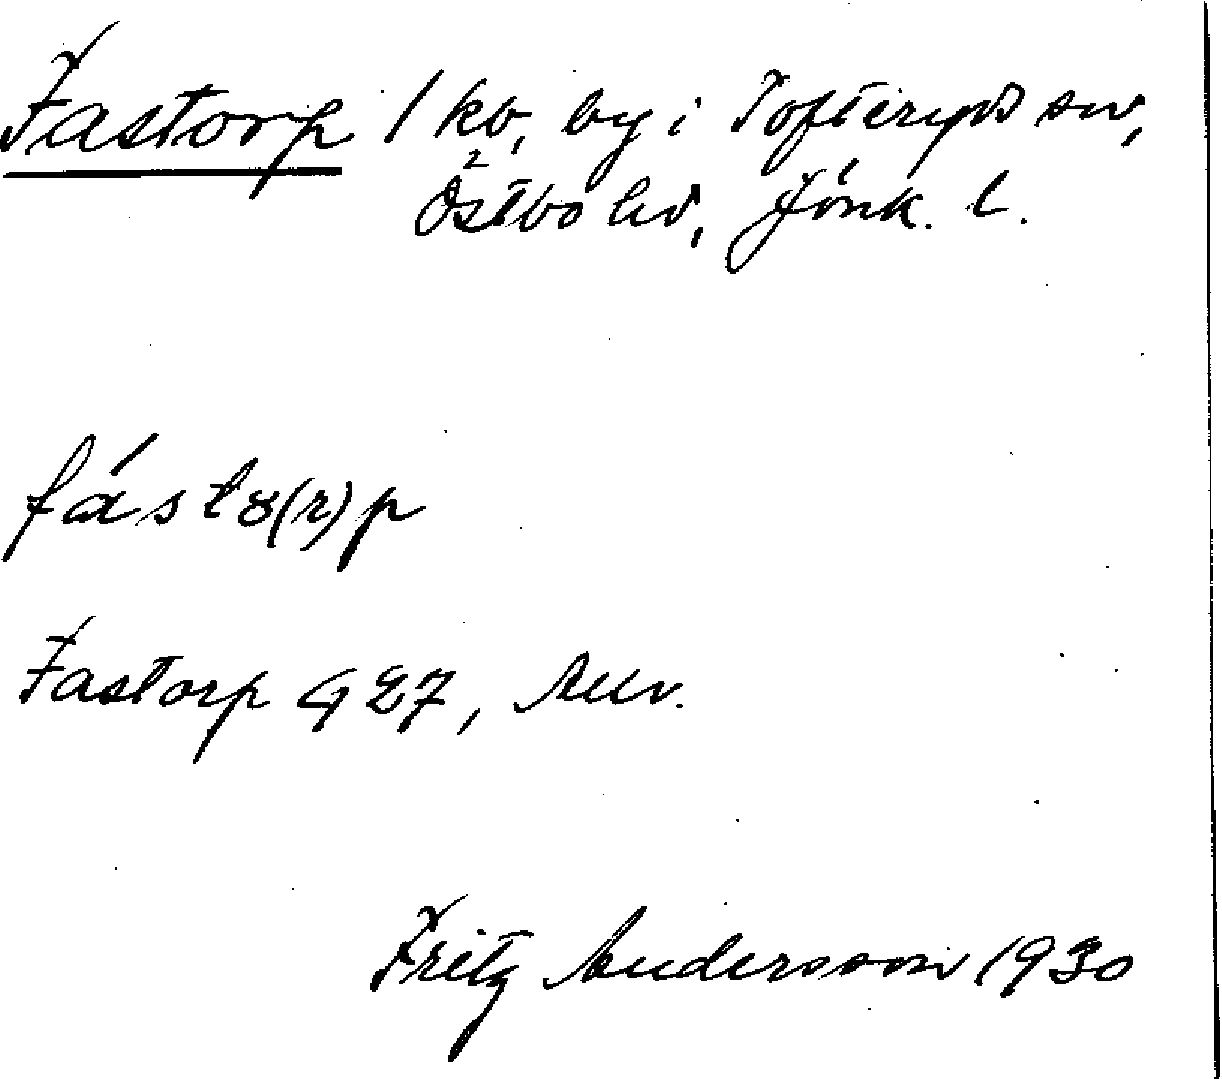 Fastorp 1 kv, by i Tofteryds sn,
Östbo hd, Jönk. l.
fást8(r)p
Fastorp G E 7,
Fritz Andersson 1930